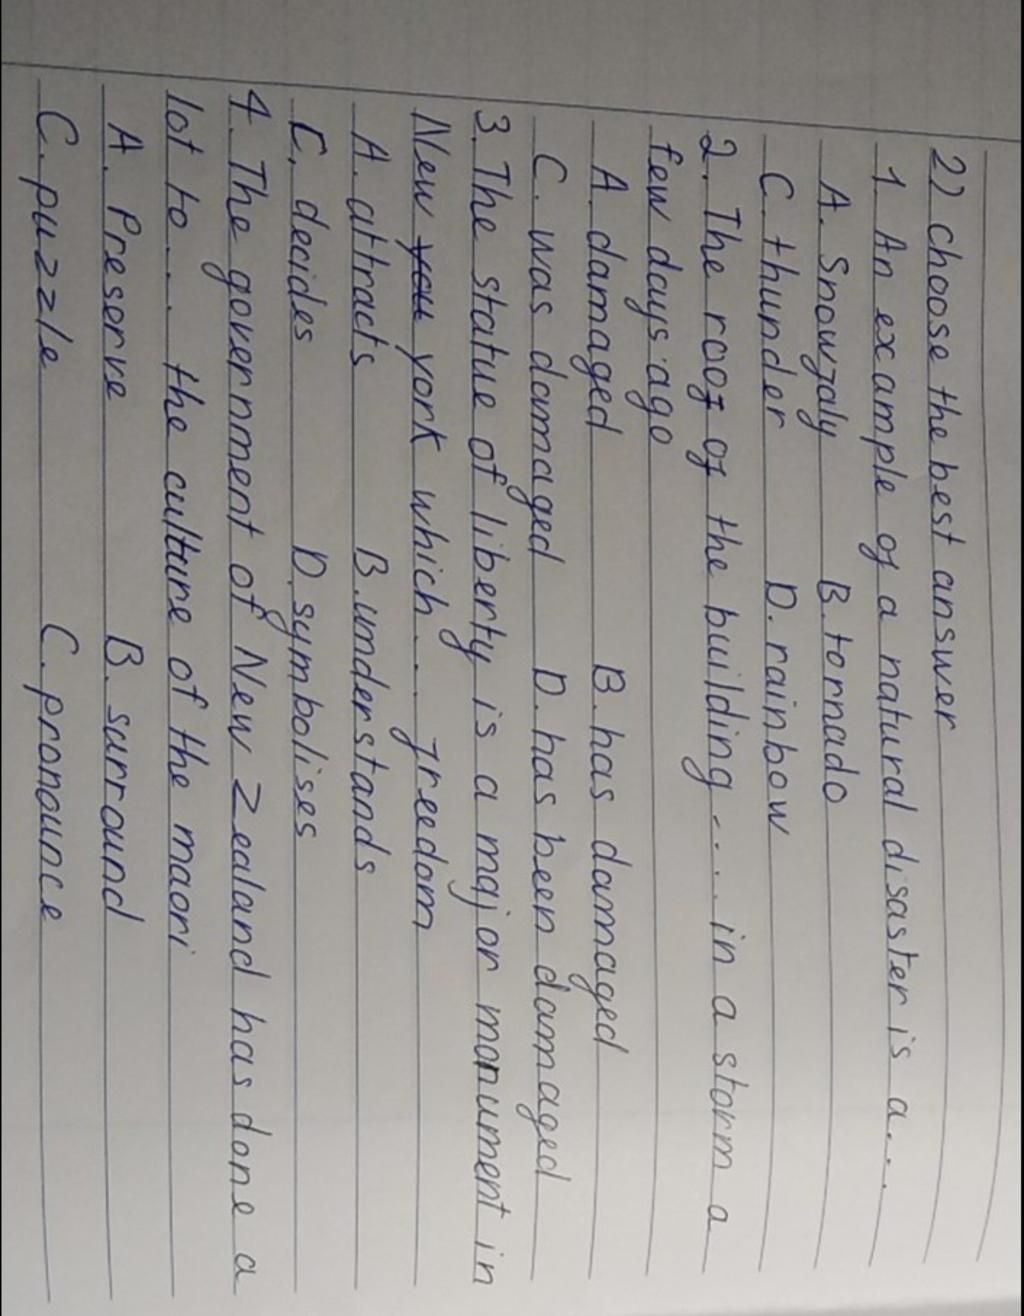 2) choose the best answer
1. An example of a natural disaster is a...
A. Snowfaly B. tornado
C. thunder D. rainbow
2. The roof of the building..... in a storm a
few days ago
A. damaged B. has damaged
C. was damaged D. has been damaged
3. The statue of liberty is a major monument in
New york which... freedom
A. attracts B. understands
C. decides D. symbolises
4. The government of New Zealand has done a
lot to.... the culture of the maori
A. Preserve B. surround
C. puzzle C. pronounce